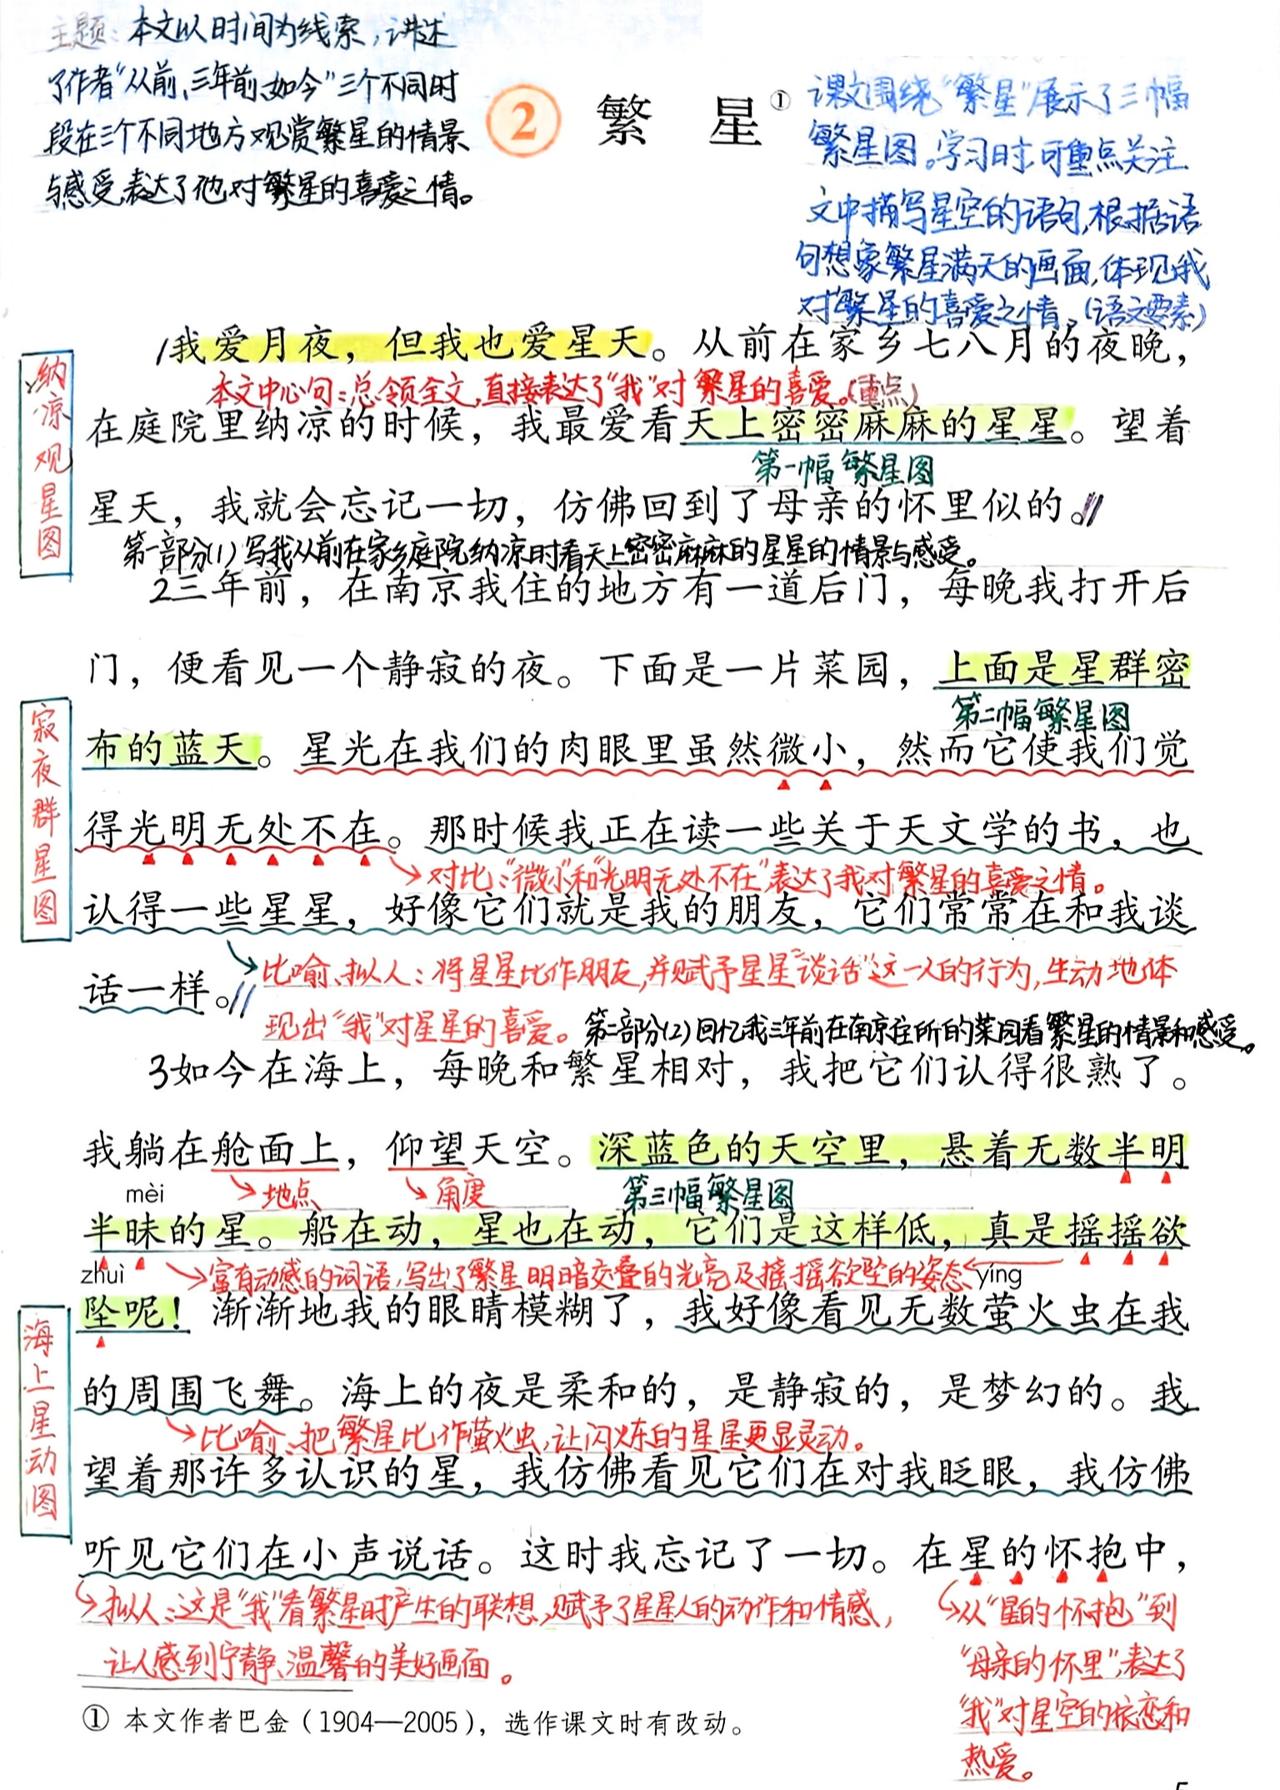 主题：本文以时间为线索，讲述
了作者“从前、三年前、如今”三个不同时
段在三个不同地方观赏繁星的情景
与感受，表达了他对繁星的喜爱之情。
2 繁星①
课文围绕“繁星”展示了三幅
繁星图。学习时，可重点关注
文中描写星空的语句，根据语
句想象繁星满天的画面，体现我
对繁星的喜爱之情。（语文要素）
纳凉观星图
1我爱月夜，但我也爱星天。从前在家乡七八月的夜晚，
本文中心句：总领全文，直接表达了“我”对繁星的喜爱。（重点）
在庭院里纳凉的时候，我最爱看天上密密麻麻的星星。望着
第一幅繁星图
星天，我就会忘记一切，仿佛回到了母亲的怀里似的。//
第一部分（1）写我从前在家乡庭院纳凉时看天上密密麻麻的星星的情景与感受。
2三年前，在南京我住的地方有一道后门，每晚我打开后
门，便看见一个静寂的夜。下面是一片菜园，上面是星群密
第二幅繁星图
寂夜群星图
布的蓝天。星光在我们的肉眼里虽然微小，然而它使我们觉
得光明无处不在。那时候我正在读一些关于天文学的书，也
对比：“微小”和“光明无处不在”，表达了我对繁星的喜爱之情。
认得一些星星，好像它们就是我的朋友，它们常常在和我谈
话一样。//
比喻、拟人：将星星比作朋友，并赋予星星“谈话”这一人的行为，生动地体
现出“我”对星星的喜爱。
第二部分（2）回忆我三年前在南京住所的菜园看繁星的情景和感受。
3如今在海上，每晚和繁星相对，我把它们认得很熟了。
我躺在舱面上，仰望天空。深蓝色的天空里，悬着无数半明
mèi
地点
角度
第三幅繁星图
半昧的星。船在动，星也在动，它们是这样低，真是摇摇欲
zhuì
富有动感的词语，写出了繁星明暗交叠的光亮及摇摇欲坠的姿态
yíng
坠呢！渐渐地我的眼睛模糊了，我好像看见无数萤火虫在我
海上星动图
的周围飞舞。海上的夜是柔和的，是静寂的，是梦幻的。我
比喻、把繁星比作萤火虫，让闪烁的星星更显灵动。
望着那许多认识的星，我仿佛看见它们在对我眨眼，我仿佛
听见它们在小声说话。这时我忘记了一切。在星的怀抱中，
拟人：这是“我”看繁星时产生的联想，赋予了星星人的动作和情感，
让人感到宁静、温馨的美好画面。
从“星的怀抱”到
“母亲的怀里”，表达了
“我”对星空的依恋和
热爱。
① 本文作者巴金（1904—2005），选作课文时有改动。